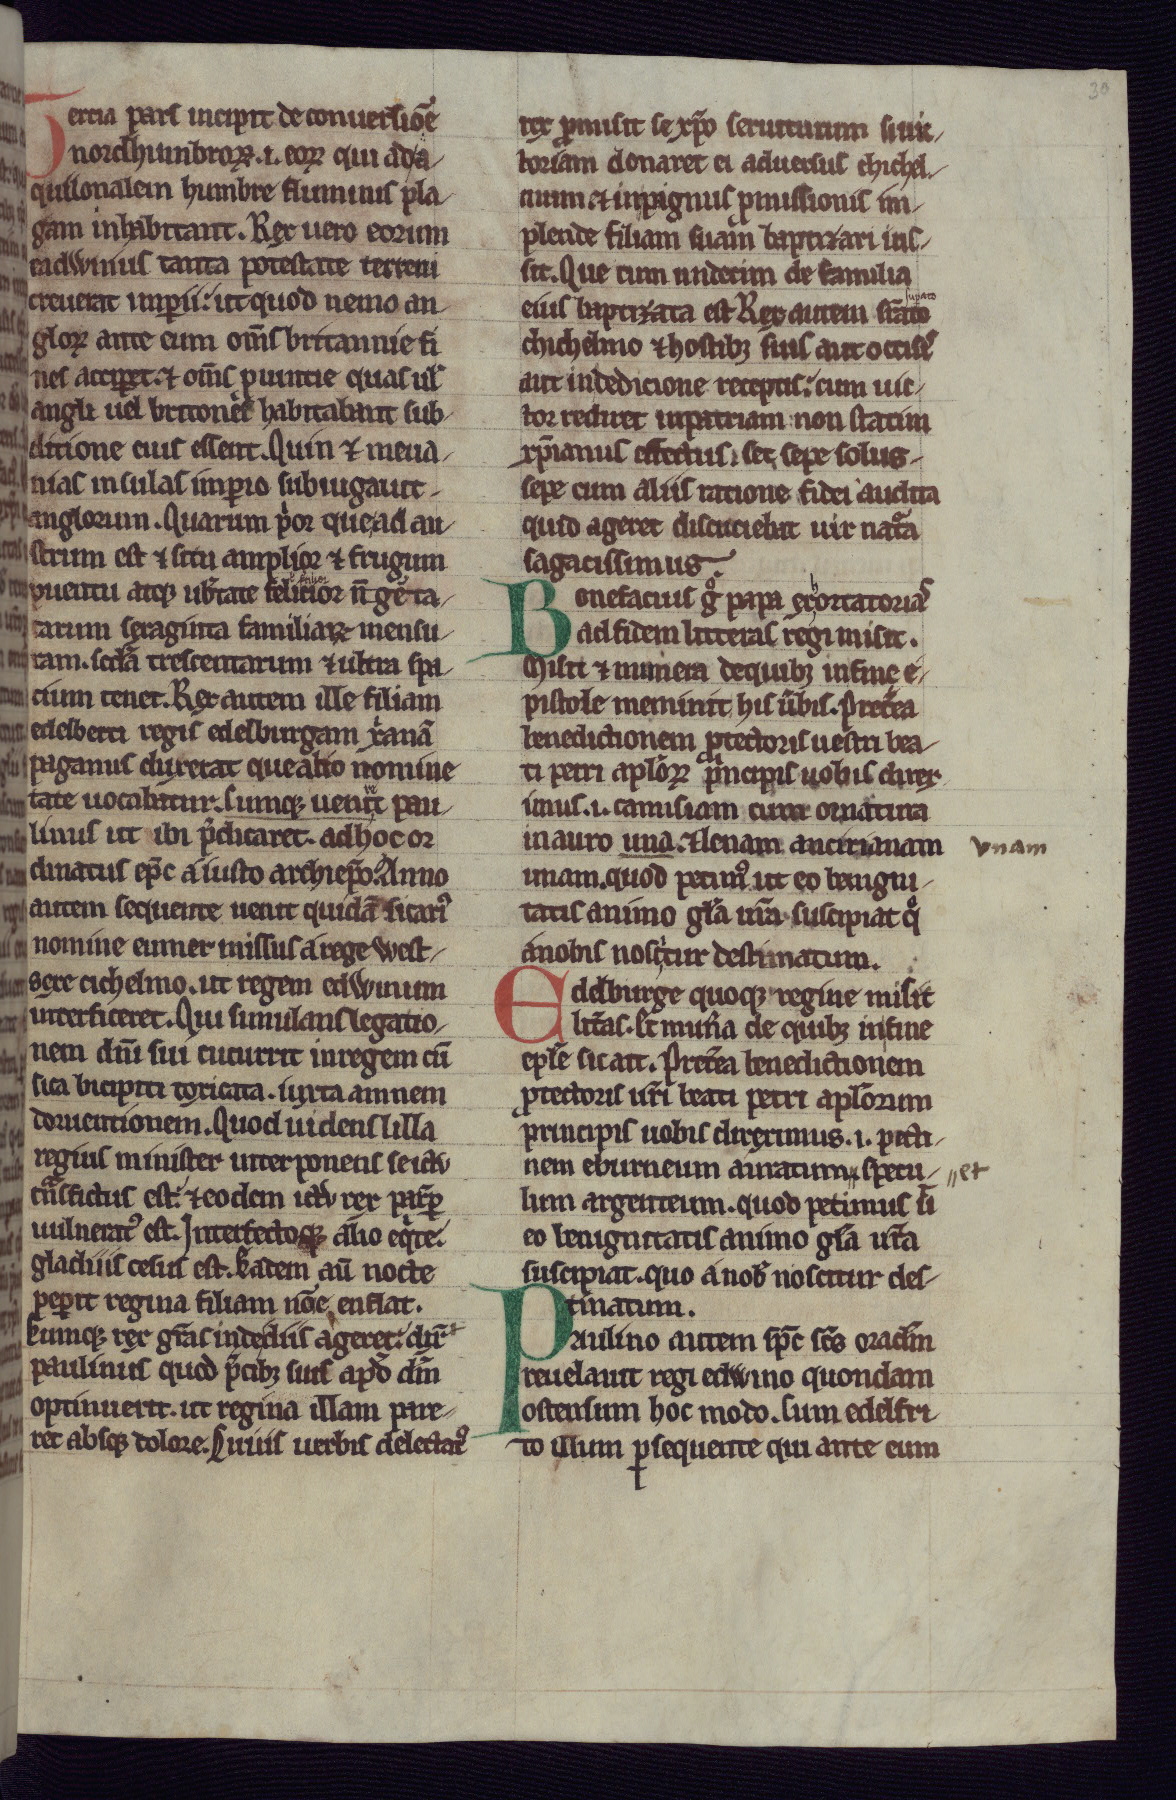 30
Tercia pars incipit de conuersiõe
nordhumbroꝝ .i. eoꝝ qui ad a
quilonalem humbre fluminis pla-
gam inhabitant. Rex uero eorum
eadwinus tanta potestate terreni
creuerat imperii: ut quod nemo an-
gloꝝ ante eum om̃s britannie fi
nes acciperet. ⁊ om̃s puincie quas ul̃
angli uel britones habitabant sub-
ditione eius essent. Quin ⁊ meua-
nias insulas impio subiugauit
anglorum. Quarum p̃or que ad au-
strum est ⁊ situ amplior ⁊ frugum
puentu atq; ub̃tate felicior ñ
tarum sexaginta familiaꝝ mensu-
ram. scd̃a trescentarum ⁊ ultra spa-
cium tenet. Rex autem ille filiam
edelberti regis edelburgam x̃anã
paganus duxerat que alio nomine
tate uocabatur. cumq; uenit pau-
linus ut ibi p̃dicaret. ad hoc or
dinatus ep̃c a iusto archiep̃o. Anno
autem sequente uenit quidã sicari᾽
nomine eumer missus a rege west-
sexe cichelmo. ut regem edwinum
interficeret. Qui simulans legatio-
nem dñi sui cucurrit in regem cũ
sica bicipiti toxicata. iuxta amnem
doruentionem. Quod uidens lilla
regius minister interponens se ictu
t̃nsfictus est. ⁊ eodem ictu rex
uulnerat᾽ est. Interfectoq; alio eq̃te.
gladiis cesus est. Eadem aũ nocte
peperit regina filiam nõe enflat.
Cumq; rex gr̃as inde diis ageret: dix̃
paulinus quod p̃cib; suis apd̃ dñm
optinuerit. ut regina illam pare-
ret absq; dolore. Cuius uerbis delectat᾽
rex p̃misit se xp̃o seruiturum si uic-
toriam donaret ei aduersus chichel-
mum. ⁊ in pignus p̃missionis im-
plende filiam suam baptizari ius-
sit. Que cum undecim de familia
eius baptizata est. Rex autem
chichelmo ⁊ hostib; suis aut occis̃
aut in dedicione receptis: cum uic-
tor rediret in patriam non statim
xp̃ianus effectus. set sepe solus-
sepe cum aliis ratione fidei audita
quid ageret discuciebat uir nat̃a
sagacissimus.
Bonefacius g̊ papa exhortatorias̃
ad fidem litteras regi misit.
Misit ⁊ munera de quib; in fine e-
pistole meminit his ũbis. Preterea
benedictionem ꝓtectoris uestri bea-
ti petri aplõꝝ p̃ncipis uobis direx-
imus .i. camisiam cum ornatura
in auro una. ⁊ lenam ancirianam
unam
unam. quod petim᾽ ut eo benigni-
tatis animo gl̃a ur̃a suscipiat q̊
a nobis noscitur destinatum.
Edelburge quoq; regine misit
litt̃as. S̃t muñera de quib; in fine
epl̃e sic ait. Pret̃ea benedictionem
ꝓtectoris ur̃i beati petri aplõrum
principis uobis direximus .i. pecti-
nem eburneum auratum // specu-
// et
lum argenteum. quod petimus ũ
eo benignitatis animo gl̃a ur̃a
suscipiat. quo a nob̃ noscitur des-
tinatum.
Paulino autem sp̃c sc̃s oraclm̃
reuelauit regi edwino quondam
ostensum hoc modo. Cum edelfri-
to illum ꝑsequente qui ante eum